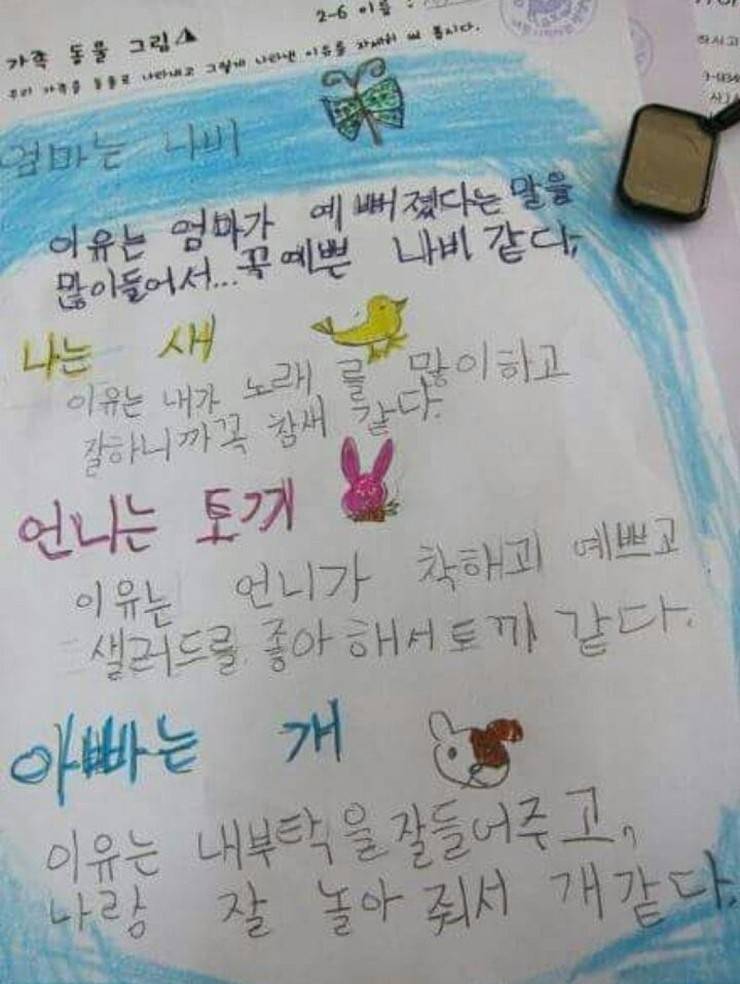 2-6 이름 :
가족 동물 그림
우리 가족을 동물로 나타내고 그렇게 나타낸 이유를 자세히 써 봅시다.
엄마는 나비
이유는 엄마가 예뻐졌다는 말을
많이들어서...꼭 예쁜 나비 같다,
나는 새
이유는 내가 노래를 많이하고
잘하니까꼭 참새 같다.
언니는 토끼
이유는 언니가 착해괴 예쁘고
샐러드를 좋아해서토끼 같다.
아빠는 개
이유는 내부탁을잘들어주고,
나랑 잘 놀아줘서 개같다.